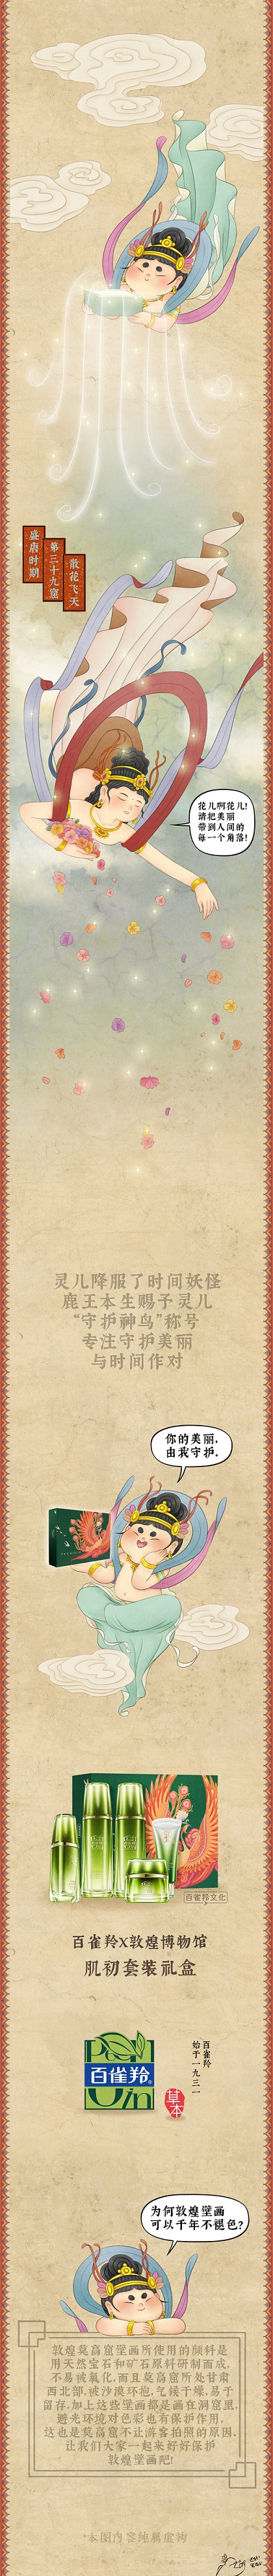 散花飞天
第三十九窟
盛唐时期
花儿啊花儿!
请把美丽
带到人间的
每一个角落!
灵儿降服了时间妖怪
鹿王本生赐予灵儿
“守护神鸟”称号
专注守护美丽
与时间作对
你的美丽,
由我守护。
百雀羚文化
百雀羚X敦煌博物馆
肌初套装礼盒
百雀羚
始于一九三一
百雀羚
草本
为何敦煌壁画
可以千年不褪色?
敦煌莫高窟壁画所使用的颜料是
用天然宝石和矿石原料研制而成,
不易被氧化,而且莫高窟所处甘肃
西北部,被沙漠环抱,气候干燥,易于
留存,加上这些壁画都是画在洞窟里,
避光环境对色彩也有保护作用,
这也是莫高窟不让游客拍照的原因。
让我们大家一起来好好保护
敦煌壁画吧!
*本图内容纯属虚构